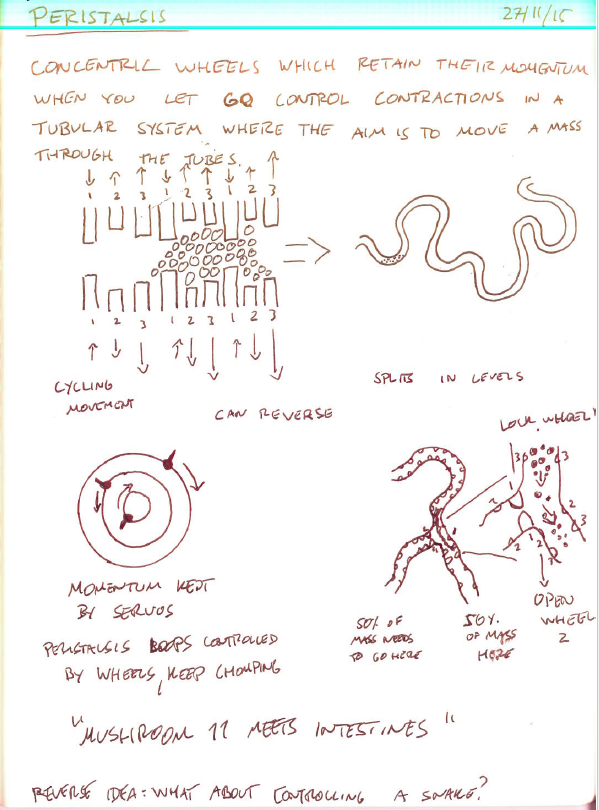 PERISTALSIS 27/11/15
CONCENTRIC WHEELS WHICH RETAIN THEIR MOMENTUM
WHEN YOU LET GO CONTROL CONTRACTIONS IN A
TUBULAR SYSTEM WHERE THE AIM IS TO MOVE A MASS
THROUGH THE TUBES.
1 2 3 1 2 3 1 2 3
1 2 3 1 2 3 1 2 3
CYCLING
MOVEMENT
CAN REVERSE
SPLITS IN LEVELS
LOCK WHEEL 1
3 3
1
2 2
3
2 1 2
3
MOMENTUM KEPT
BY SERVOS
PERISTALSIS LOOPS CONTROLLED
BY WHEELS, KEEP CHOMPING
50% OF
MASS NEEDS
TO GO HERE
50%
OF MASS
HERE
OPEN
WHEEL
2
"MUSHROOM 11 MEETS INTESTINES"
REVERSE IDEA: WHAT ABOUT CONTROLLING A SNAKE?